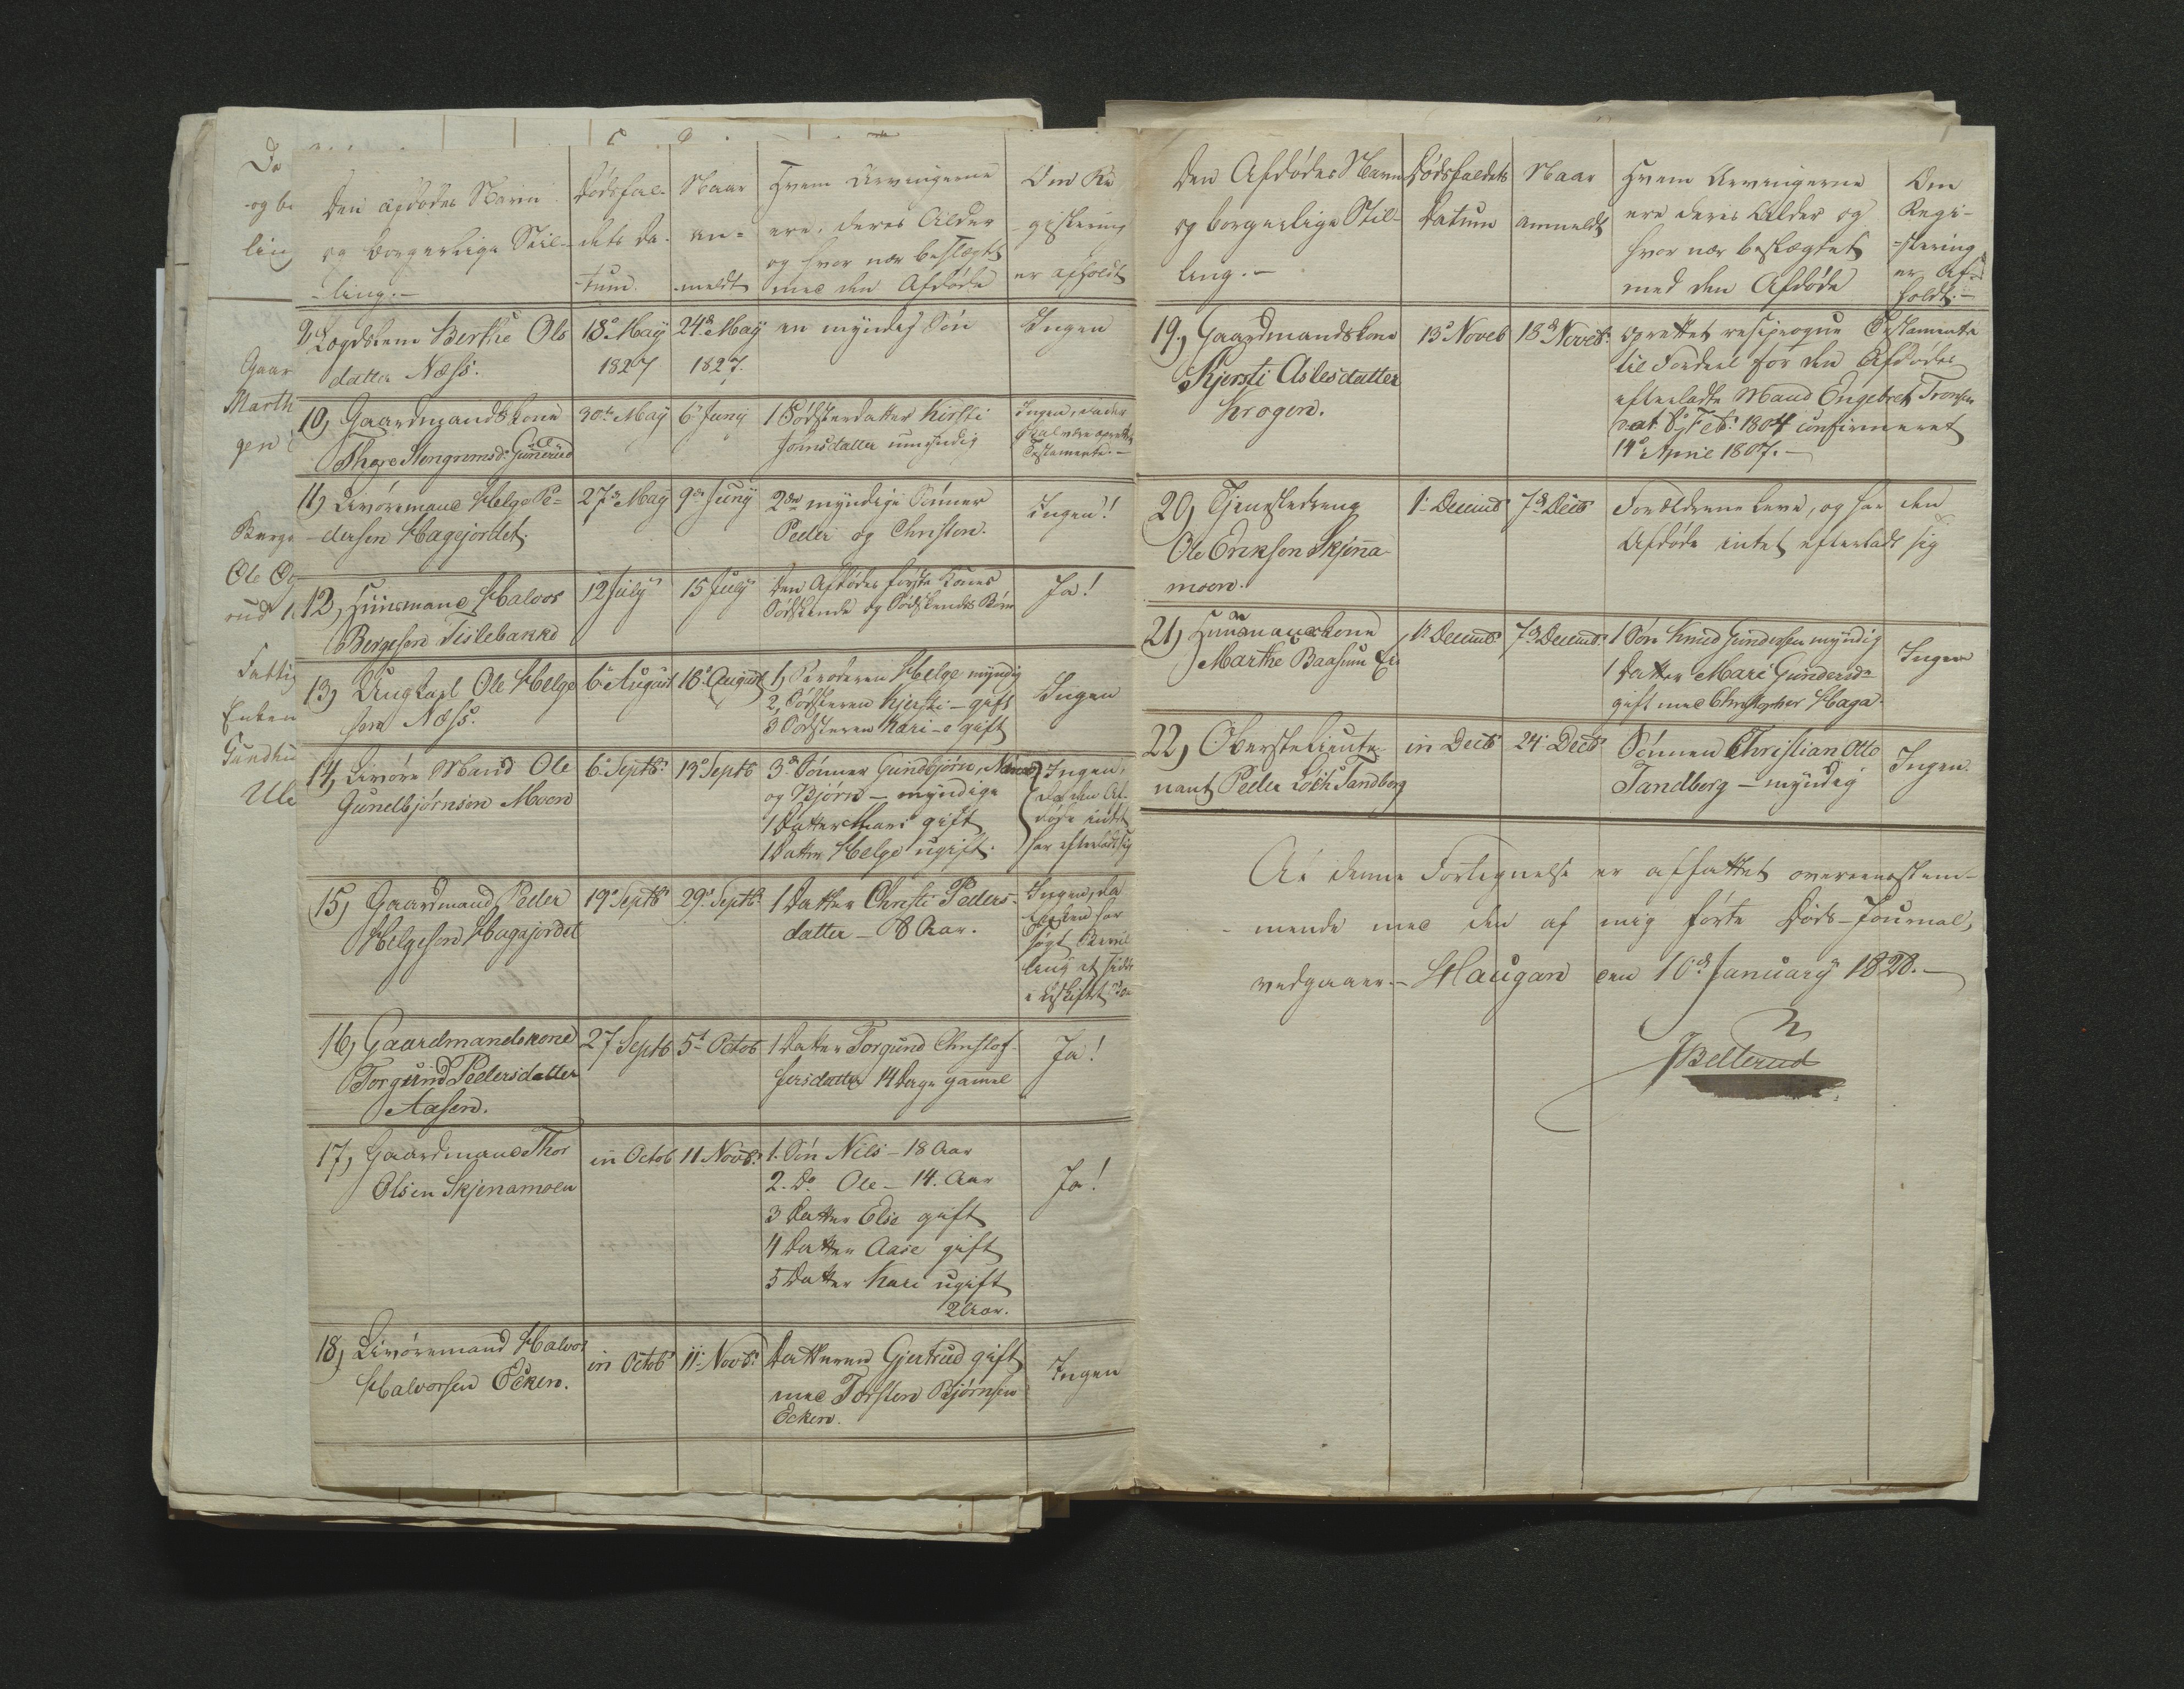 Den Afdødes Navn
og borgerlige Stil-
ling.-
Dødsfal-
dets Da-
tum.
Naar
an-
meldt
Hvem Arvingerne
ere, deres Alder
og hvor nær beslægtet
med den Afdøde
Om Re
gistering
er afholdt
9, Logdskone Berthe Ols
datter Næss.
18de May
1827
24de May
1827.
en myndig Søn
Ingen
10, Gaardmandskone
Thore Stengrimsd. Gunerud
30te May
6te Juny
1 Sødsterdatter Kirsti
Johnsdatter umyndig
Ingen, da der
skal være oprettet
Testamente.-
11, Livøremand Helge Pe-
dersen Hagejordet.
27de May
9de Juny
2de myndige Sønner
Peder og Christen.
Ingen!
12, Huusmand Halvor
Bergesen Tislebakke
12 July
15 July
Den Afdødes første Kones
Sødskende og Sødskendes Børn
Ja!
13, Ungkarl Ole Helge
sen Næss.
6te August
18de August
1, Broderen Helge myndig
2, Sødsteren Kjersti - gift
3 Sødsteren Kari - gift
Ingen
14, Livøre Mand Ole
Gundbjørnsen Moen
6te Septb.
19de Septb
3de Sønner Gundbjørn,
og Bjørn - myndige
1 Datter Mari gift
1 Datter Helge ugift.
Ingen,
da den Af-
døde intet
har efterladt sig
15, Gaardmand Peder
Helgesen Hagajordet
19de Septb
29de Septb.
1 Datter Christi Peders-
datter - 8 Aar.
Ingen, da
Enken har
søgt Bevil
ling at sidde
i uskiftet Boe
16, Gaardmandskone
Torgund Pedersdatter
Aasen.
27 Septb
5te Octob
1 Datter Torgund Christof-
fersdatter 14 Dage gammel
Ja!
17, Gaardmand Thor
Olsen Skjenamoen
in Octob
11 Novb.
1. Søn Nils - 18 Aar
2. Do Ole - 14. Aar
3 Datter Else gift
4 Datter Aase gift
5 Datter Kari ugift
Aar.
Ja!
18, Livøremand Halvor
Halvorsen Ecken.
in Octob
11. Novb.
Datteren Gjertrud gift
med Torsten Bjørnsen
Ecken.
Ingen
Den Afdødes Navn
og borgerlige Stil-
ling.-
Dødsfaldets
Datum
Naar
anmeldt
Hvem Arvingerne
ere deres Alder og
hvor nær beslægtet
med den Afdøde
Om
Regi-
stering
er af-
holdt.-
19, Gaardmandskone
Kjersti Aslesdatter
Krogen.
13de Novb
18de Novb.
oprettet resiproque Testamente
til Fordeel for den Afdødes
efterladte Mand Engebret Tronsen
dat. 8, Feb. 1804 confirmeret
14de April 1807.-
20, Tjenstedreng
Ole Eriksen Skjena-
moen.
1. Decemb
7de Decb
Forældrene leve, og har den
Afdøde intet efterladt sig
21, Huusmandskone
Marthe Baasum Eie
Decemb
7de Decemb.
1 Søn Knud Gundersen myndig
1 Datter Mari Gundersd.
gift med Christopher Haga.
Ingen
22, Oberstelieute-
nant Peder Loch Tandberg
in Decb
24. Decb.
Sønnen Christian Otto
Tandberg - myndig
Ingen.
At denne Fortegnelse er affattet overeenstem-
mende med den af mig førte Døds-Journal,
vedgaaes.- Haugan den 10de January 1828.-
JBellerud